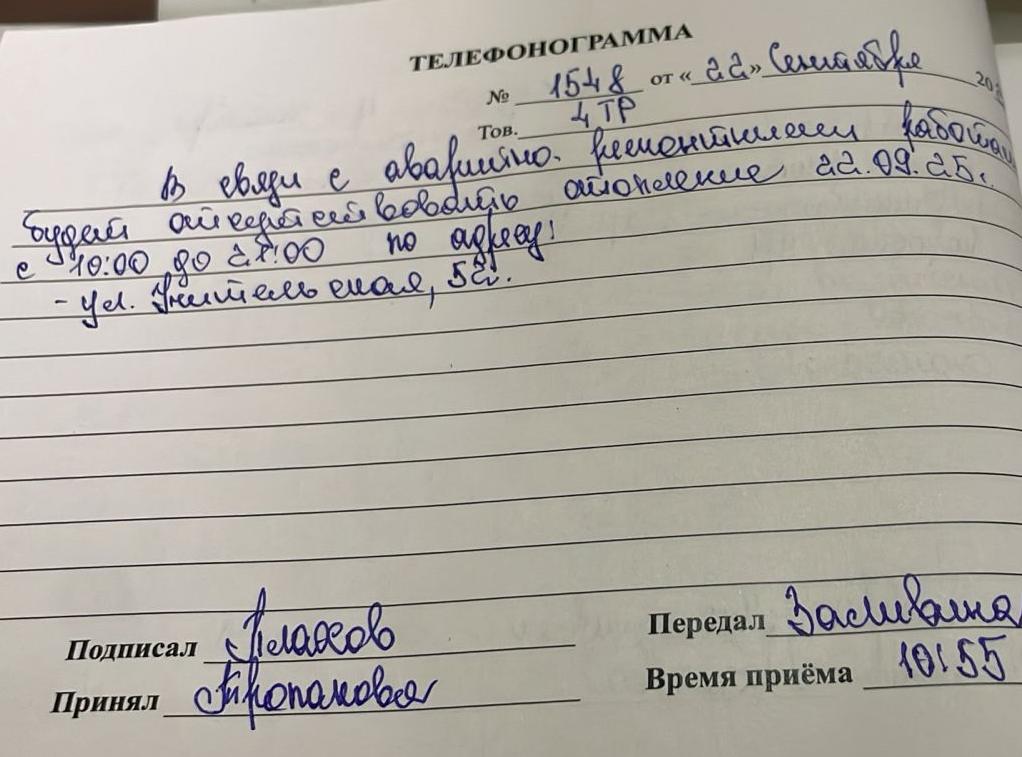 ТЕЛЕФОНОГРАММА
№ 1548 от «22» Сентября 20
Тов. 4 ТР
В связи с аварийно. ремонтными работам
будет отсутствовать отопление 22.09.25г.
с 10:00 до 21:00 по адресу:
- ул. Учительская, 52.
Подписал Плахов
Передал Заливина
Принял Тропанова
Время приёма 10:55